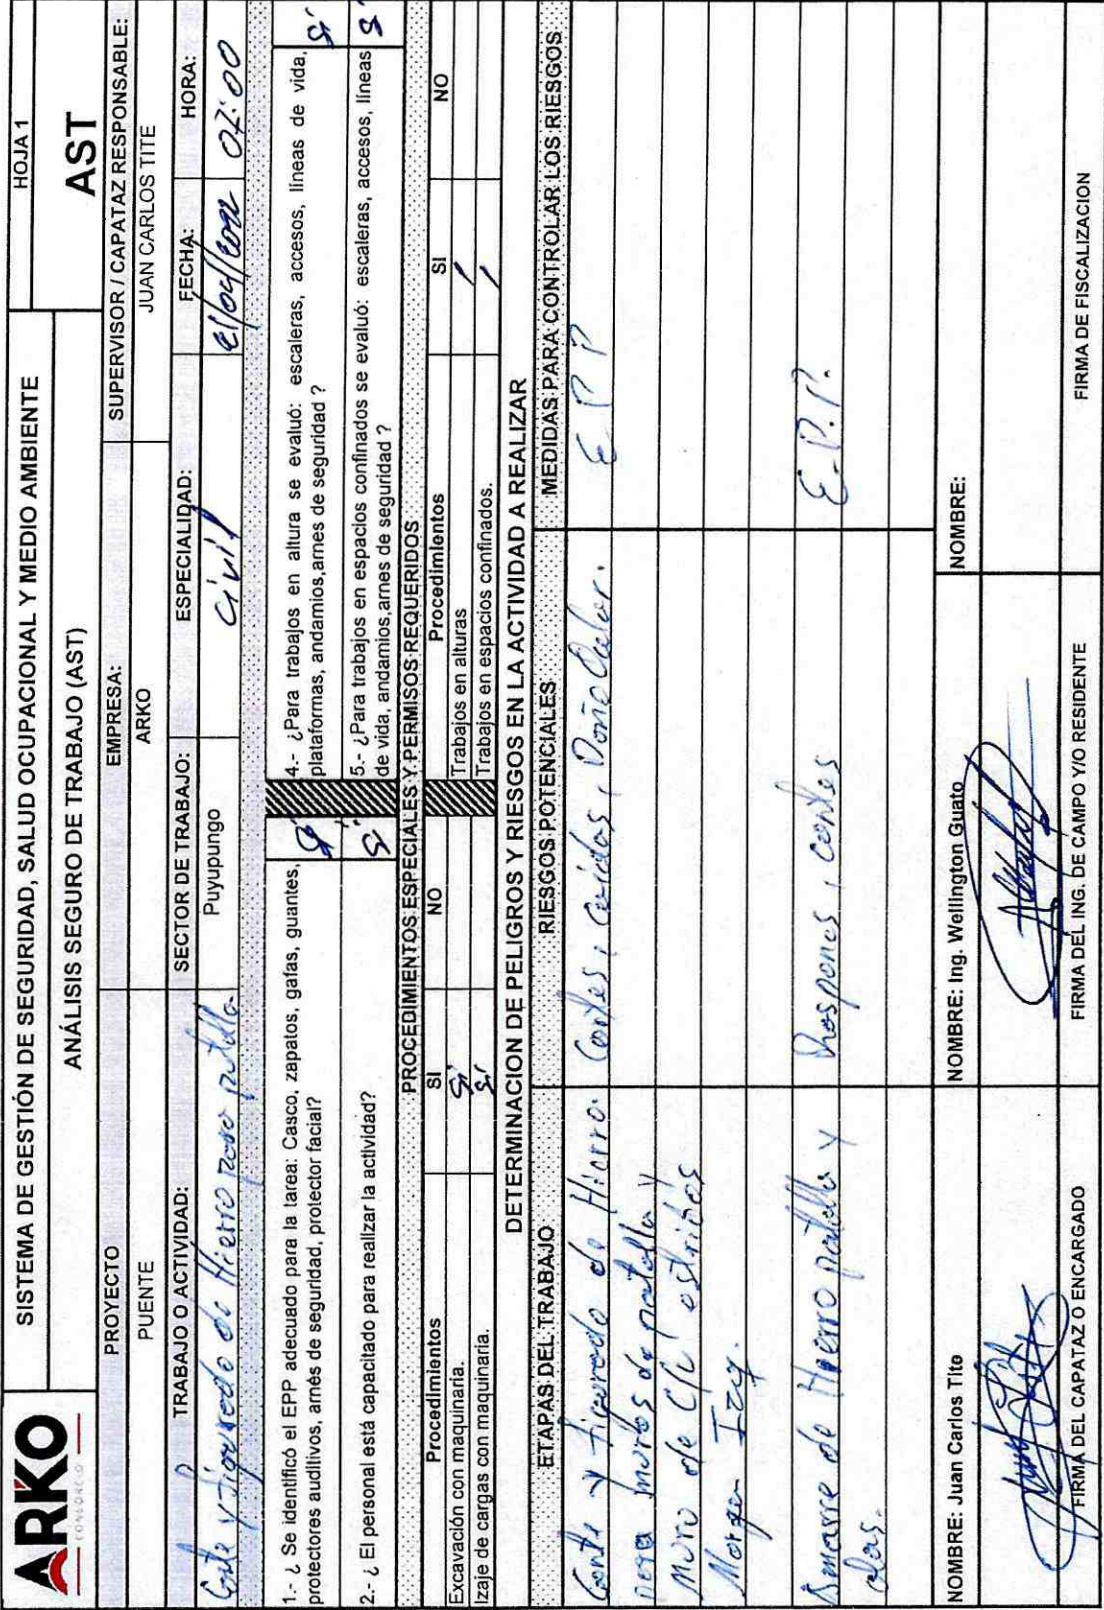 ARKO
CONSORCIO
SISTEMA DE GESTIÓN DE SEGURIDAD, SALUD OCUPACIONAL Y MEDIO AMBIENTE
HOJA 1
ANÁLISIS SEGURO DE TRABAJO (AST)
AST
PROYECTO
EMPRESA:
SUPERVISOR / CAPATAZ RESPONSABLE:
PUENTE
ARKO
JUAN CARLOS TITE
TRABAJO O ACTIVIDAD:
SECTOR DE TRABAJO:
ESPECIALIDAD:
FECHA:
HORA:
Corte y Figurado de Hierro para patalla
Puyupungo
Civil
07:00
1.- ¿ Se identificó el EPP adecuado para la tarea: Casco, zapatos, gafas, guantes,
protectores auditivos, arnés de seguridad, protector facial?
Sí
4.- ¿Para trabajos en altura se evaluó: escaleras, accesos, líneas de vida,
plataformas, andamios,arnes de seguridad ?
Sí
2.- ¿ El personal está capacitado para realizar la actividad?
Sí
5.- ¿Para trabajos en espacios confinados se evaluó: escaleras, accesos, líneas
de vida, andamios,arnes de seguridad ?
Sí
PROCEDIMIENTOS ESPECIALES Y PERMISOS REQUERIDOS
Procedimientos
SI
NO
Procedimientos
SI
NO
Excavación con maquinaria.
Sí
Trabajos en alturas
/
Izaje de cargas con maquinaria.
Sí
Trabajos en espacios confinados.
/
DETERMINACION DE PELIGROS Y RIESGOS EN LA ACTIVIDAD A REALIZAR
ETAPAS DEL TRABAJO
RIESGOS POTENCIALES
MEDIDAS PARA CONTROLAR LOS RIESGOS
Corte y figurado de Hierro.
Cortes, caidas,
E P P
para muros de patalla y
Muro de C/C estribos
Margen Izq.
Amarre de Hierro patalla y
Raspones, cortes
E.P.P.
alas.
NOMBRE: Juan Carlos Tite
NOMBRE: Ing. Wellington Guato
NOMBRE:
FIRMA DEL CAPATAZ O ENCARGADO
FIRMA DEL ING. DE CAMPO Y/O RESIDENTE
FIRMA DE FISCALIZACION